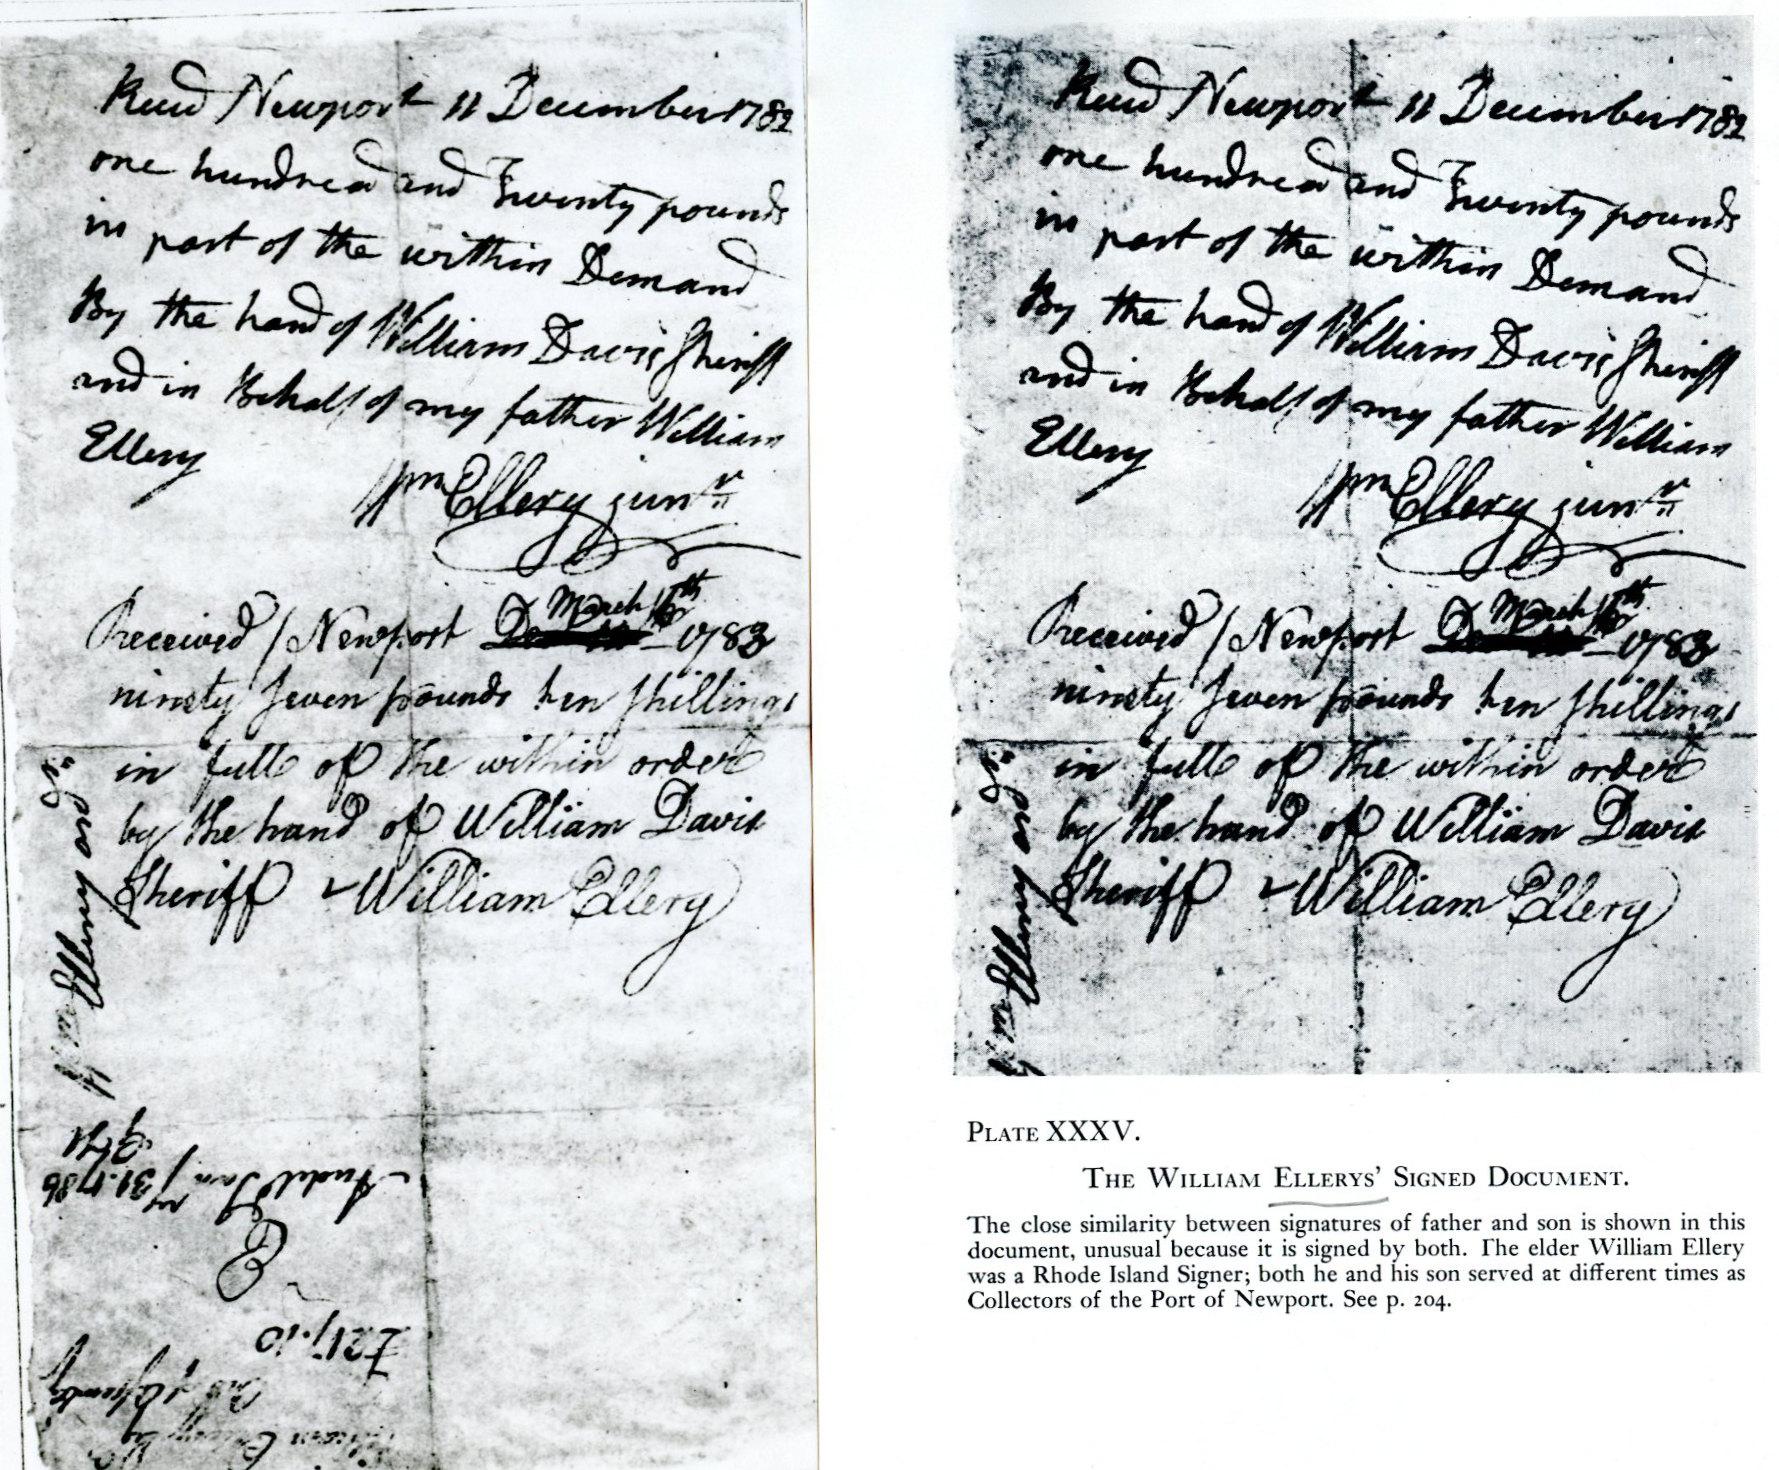 Recd Newport 11 December 1782
one hundred and Twenty pounds
in part of the within Demand
By the hand of William Davis Sheriff
and in Behalf of my father William
Ellery
Wm Ellery junr
Received / Newport March 16th 1783
ninety seven pounds ten shillings
in full of the within order
by the hand of William Davis
Sheriff William Ellery
Wm Ellery ord
Audit Jan'y 31. 1786
£217.10
Recd Newport 11 December 1782
one hundred and Twenty pounds
in part of the within Demand
By the hand of William Davis Sheriff
and in Behalf of my father William
Ellery
Wm Ellery junr
Received / Newport March 16th 1783
ninety seven pounds ten shillings
in full of the within order
by the hand of William Davis
Sheriff William Ellery
PLATE XXXV.
THE WILLIAM ELLERYS' SIGNED DOCUMENT.
The close similarity between signatures of father and son is shown in this
document, unusual because it is signed by both. The elder William Ellery
was a Rhode Island Signer; both he and his son served at different times as
Collectors of the Port of Newport. See p. 204.